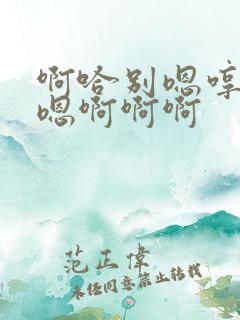 啊哈别嗯哼
嗯啊啊啊
范正伟
未经同意禁止转载